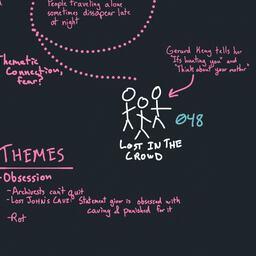 People traveling alone
sometimes dissapear late
at night
Thematic
Connection,
fear?
Gerard Keay tells her
"It's hunting you" and
"Think about your mother"
048
LOST IN THE
CROWD
THEMES
-Obsession
-Archivests can't quit
-LOST JOHN'S CAVE: Statement giver is obsessed with
caving & punished for it
-Rot